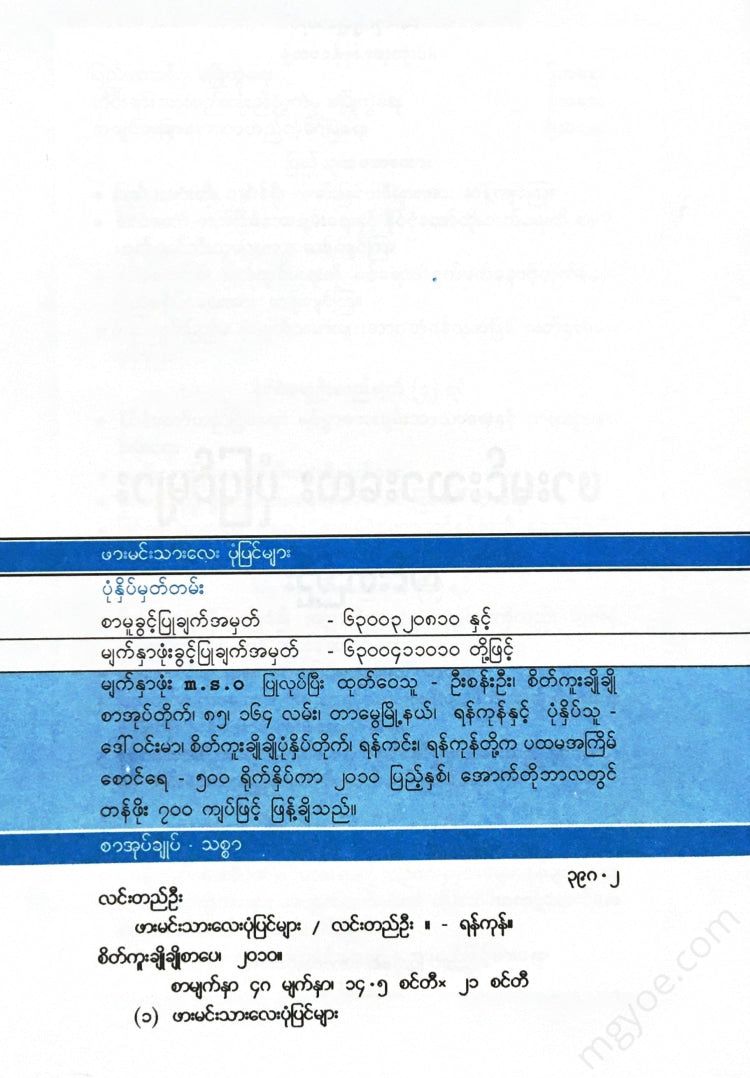 ဖားမင်းသားလေး ပုံပြင်များ
ပုံနှိပ်မှတ်တမ်း
စာမူခွင့်ပြုချက်အမှတ် - ၆၃၀၀၃၂၀၈၁၀ နှင့်
မျက်နှာဖုံးခွင့်ပြုချက်အမှတ် - ၆၃၀၀၄၁၁၀၁၀ တို့ဖြင့်
မျက်နှာဖုံး m.s.o ပြုလုပ်ပြီး ထုတ်ဝေသူ - ဦးစန်းဦး၊ စိတ်ကူးချိုချို
စာအုပ်တိုက်၊ ၈၅၊ ၁၆၄ လမ်း၊ တာမွေမြို့နယ်၊ ရန်ကုန်နှင့် ပုံနှိပ်သူ -
ဒေါ်ဝင်းမာ၊ စိတ်ကူးချိုချိုပုံနှိပ်တိုက်၊ ရန်ကင်း၊ ရန်ကုန်တို့က ပထမအကြိမ်
စောင်ရေ - ၅၀၀ ရိုက်နှိပ်ကာ ၂၀၁၀ ပြည့်နှစ်၊ အောက်တိုဘာလတွင်
တန်ဖိုး ၇၀၀ ကျပ်ဖြင့် ဖြန့်ချိသည်။
စာအုပ်ချုပ် - သစ္စာ
၃၉၈.၂
လင်းတည်ဦး
ဖားမင်းသားလေးပုံပြင်များ / လင်းတည်ဦး ။ - ရန်ကုန်။
စိတ်ကူးချိုချိုစာပေ၊ ၂၀၁၀။
စာမျက်နှာ ၄၈ မျက်နှာ၊ ၁၄.၅ စင်တီ× ၂၁ စင်တီ
(၁) ဖားမင်းသားလေးပုံပြင်များ
mgyoe.com